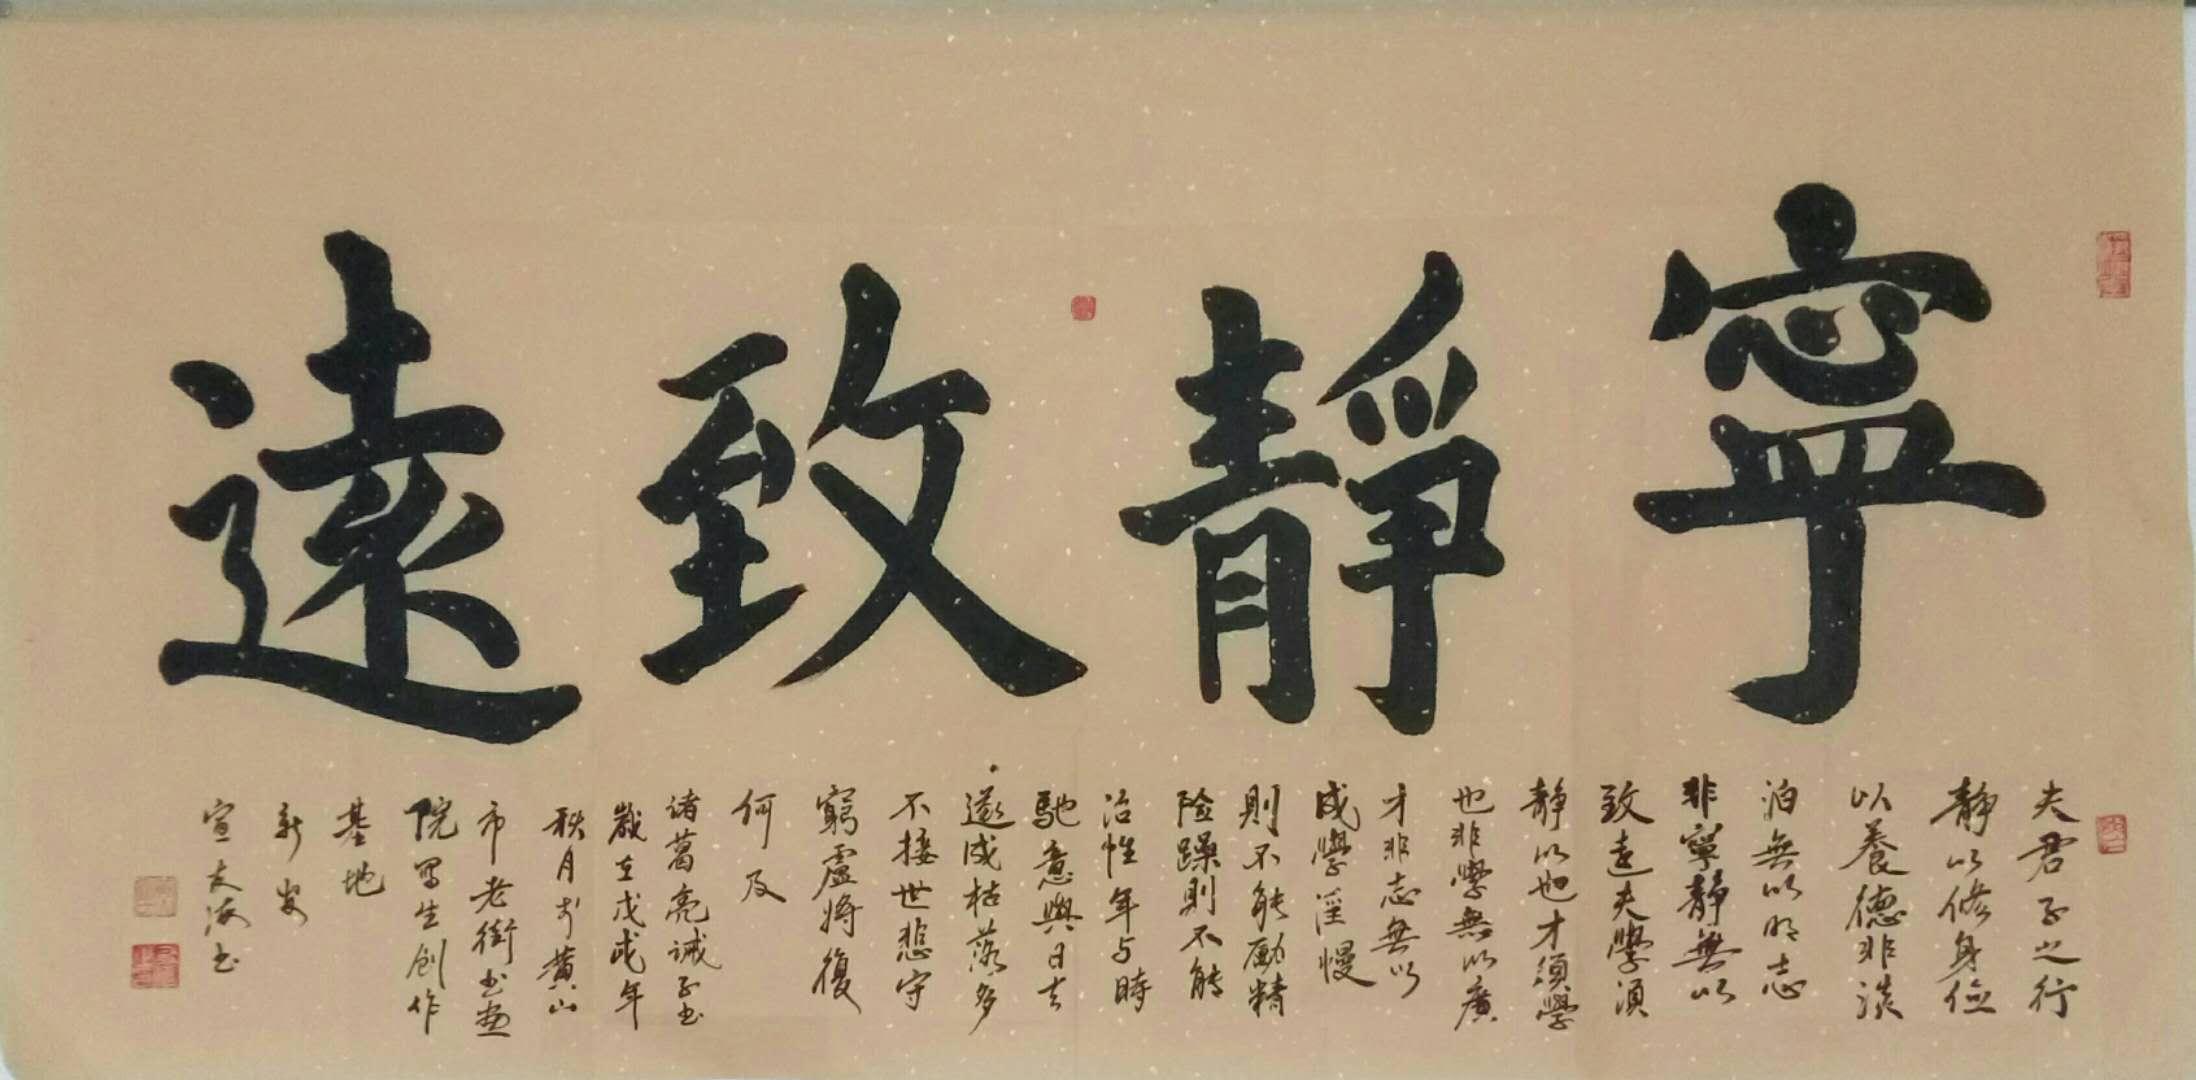 寧靜致遠
夫君子之行
靜以修身儉
以養德非淡
泊無以明志
非寧靜無以
致遠夫學須
靜以也才須學
也非學無以廣
才非志無以
成學淫慢
則不能勵精
险躁則不能
治性年与時
馳意與日去
遂成枯落多
不接世悲守
窮廬将復
何及
诸葛亮诫子书
歲在戊戌年
秋月於黄山
市老街书画
院写生创作
基地
新安
宣友海书